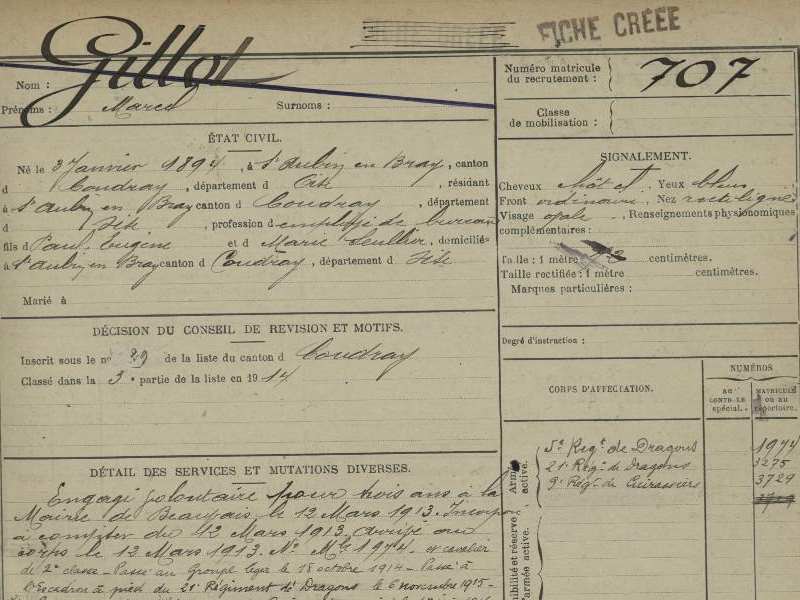 FICHE CRÉÉE
Gillot
Nom :
Prénoms : Marcel Surnoms :
Numéro matricule
du recrutement :
707
Classe
de mobilisation :
ÉTAT CIVIL.
Né le 3 Janvier 1894, à St Aubin en Bray, canton
d Coudray, département d Oise, résidant
à St Aubin en Bray canton d Coudray, département
d Oise, profession d employé de bureau
fils d Paul Eugène et d Marie, domiciliés
à St Aubin en Bray canton d Coudray, département d Oise
Marié à
SIGNALEMENT.
Cheveux chât Yeux bleus
Front ordinaire Nez rectiligne
Visage ovale Renseignements physionomiques
complémentaires :
Taille : 1 mètre centimètres.
Taille rectifiée : 1 mètre centimètres.
Marques particulières :
DÉCISION DU CONSEIL DE REVISION ET MOTIFS.
Inscrit sous le no 29 de la liste du canton d Coudray
Classé dans la 3e partie de la liste en 1914
Degré d'instruction :
CORPS D'AFFECTATION.
NUMÉROS
AU
CONTROLE
spécial.
MATRICULE
OU AU
répertoire.
Armée
active.
5e Régt de Dragons 1974
21e Régt de Dragons 3275
9e Régt de Cuirassiers 3729
nibilité et réserve
l'armée active.
DÉTAIL DES SERVICES ET MUTATIONS DIVERSES.
Engagé volontaire pour trois ans à la
Mairie de Beauvais le 12 Mars 1913. Incorporé
à compter du 12 Mars 1913, arrivé au
corps le 12 Mars 1913. No Mle 1974, et cavalier
de 2e classe - Passé au Groupe léger le 18 octobre 1914 - Passé à
l'Escadron à pied du 21e Régiment de Dragons le 6 novembre 1915 -